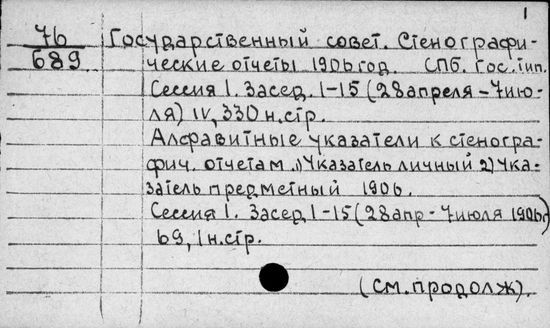 1
76 Государственный совет. Стенографи-
689 ческие отчеты 1906 год. СПб. Гос. тип.
Сессия 1. Засед. 1-15 (28 апреля - 7 ию-
ля) IV, 330 н.стр.
Алфавитные указатели к стеногра-
фич. отчетам. 1) Указатель личный 2) Ука-
затель предметный 1906.
Сессия 1. Засед 1-15 (28 апр - 7 июля 1906 г
69, 1 н.стр.
(См. продолж).